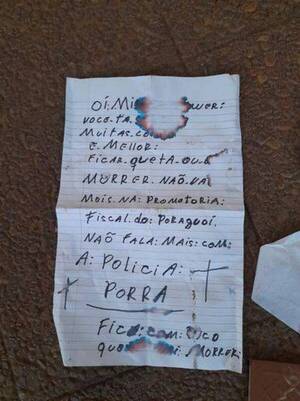 OÍ: Mi WER:
VOCE. TA.
MUITAS. CO
E. MELLOR:
FICAR. QUETA. OUA
MORRER. NÃO. VA
MOIS. NA: PROMOTORIA:
FISCAL. DO: PORAGUOÍ.
NÃO FALA: MAIS: COM:
A: POLICIA:
PORRA
FICA: COM: OCO
QUO MORRER: